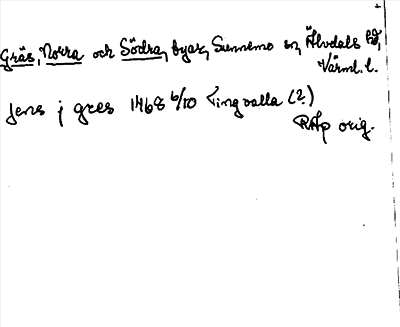 Gräs, Norra och Södra, byar, Sunnemo sn, Älvdals hd,
Värml. l.
Jens j gres 1468 6/10 Tingvalla (?)
RAp orig.